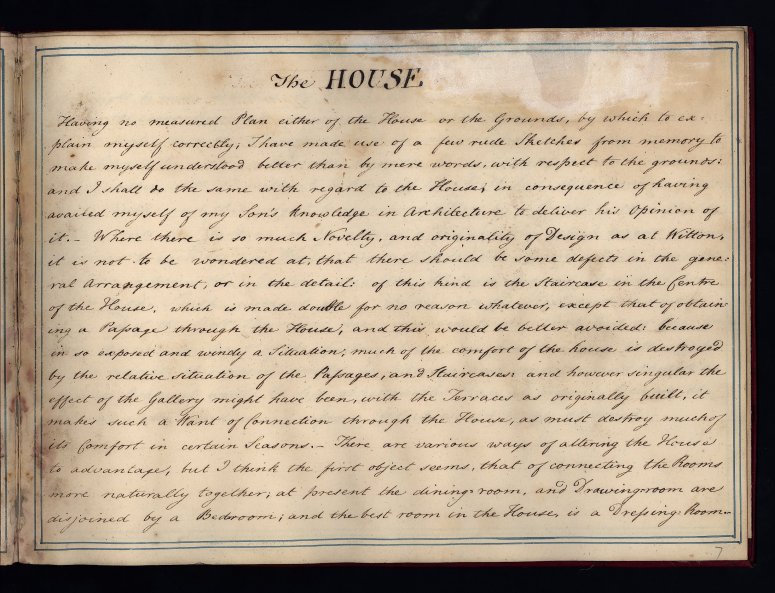 The HOUSE
Having no measured Plan either of the House or the Grounds, by which to ex-
plain myself correctly; I have made use of a few rude Sketches from memory to
make myself understood better than by mere words, with respect to the grounds:
and I shall do the same with regard to the House; in consequence of having
availed myself of my Son's Knowledge in Architecture to deliver his Opinion of
it. – Where there is so much Novelty, and originality of Design as at Witton,
it is not to be wondered at, that there should be some defects in the gene-
ral Arrangement, or in the detail: of this kind is the Staircase in the Centre
of the House, which is made double for no reason whatever, except that of obtain
ing a Passage through the House, and this would be better avoided: because
in so exposed and windy a Situation, much of the comfort of the house is destroyed
by the relative situation of the Passages, and Staircases: and however singular the
effect of the Gallery might have been, with the Terraces as originally built, it
makes such a Want of Connection through the House, as must destroy much of
its Comfort in certain Seasons. – There are various ways of altering the House
to advantage, but I think the first object seems, that of connecting the Rooms
more naturally together; at present the dining-room, and Drawing-room are
disjoined by a Bedroom; and the best room in the House, is a Dressing-Room–
7